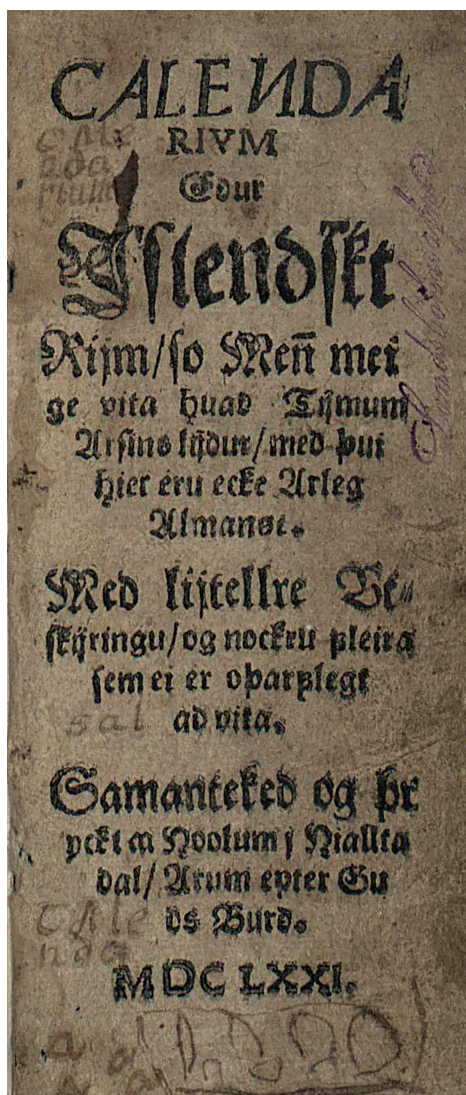 CALENDA
RIVM
Edur
Jſlendſkt
Rijm/ſo Men̄ mei
ge vita huad Tijmum
Arſins lijdur/med þui
hier eru ecke Arleg
Almanøk.
Med lijtellre Vt-
ſkijringu/og nockru fleira
ſem ei er oþarflegt
ad vita.
Samanteked og þr
yckt a Hoolum j Hiallta
dal/ Arum epter Gu
ds Burd.
MDC LXXI.
CAle
nda
rium
sal
CAle
nda